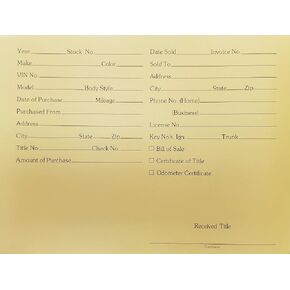 Year Stock No
Make Color
VIN No
Model Body Style
Date of Purchase Mileage
Purchased From
Address
City State Zip
Title No Check No
Amount of Purchase
Date Sold Invoice No.
Sold To
Address
City State Zip
Phone No. (Home)
(Business)
License No
Key No's Ign. Trunk
Bill of Sale
Certificate of Title
Odometer Certificate
Received Title